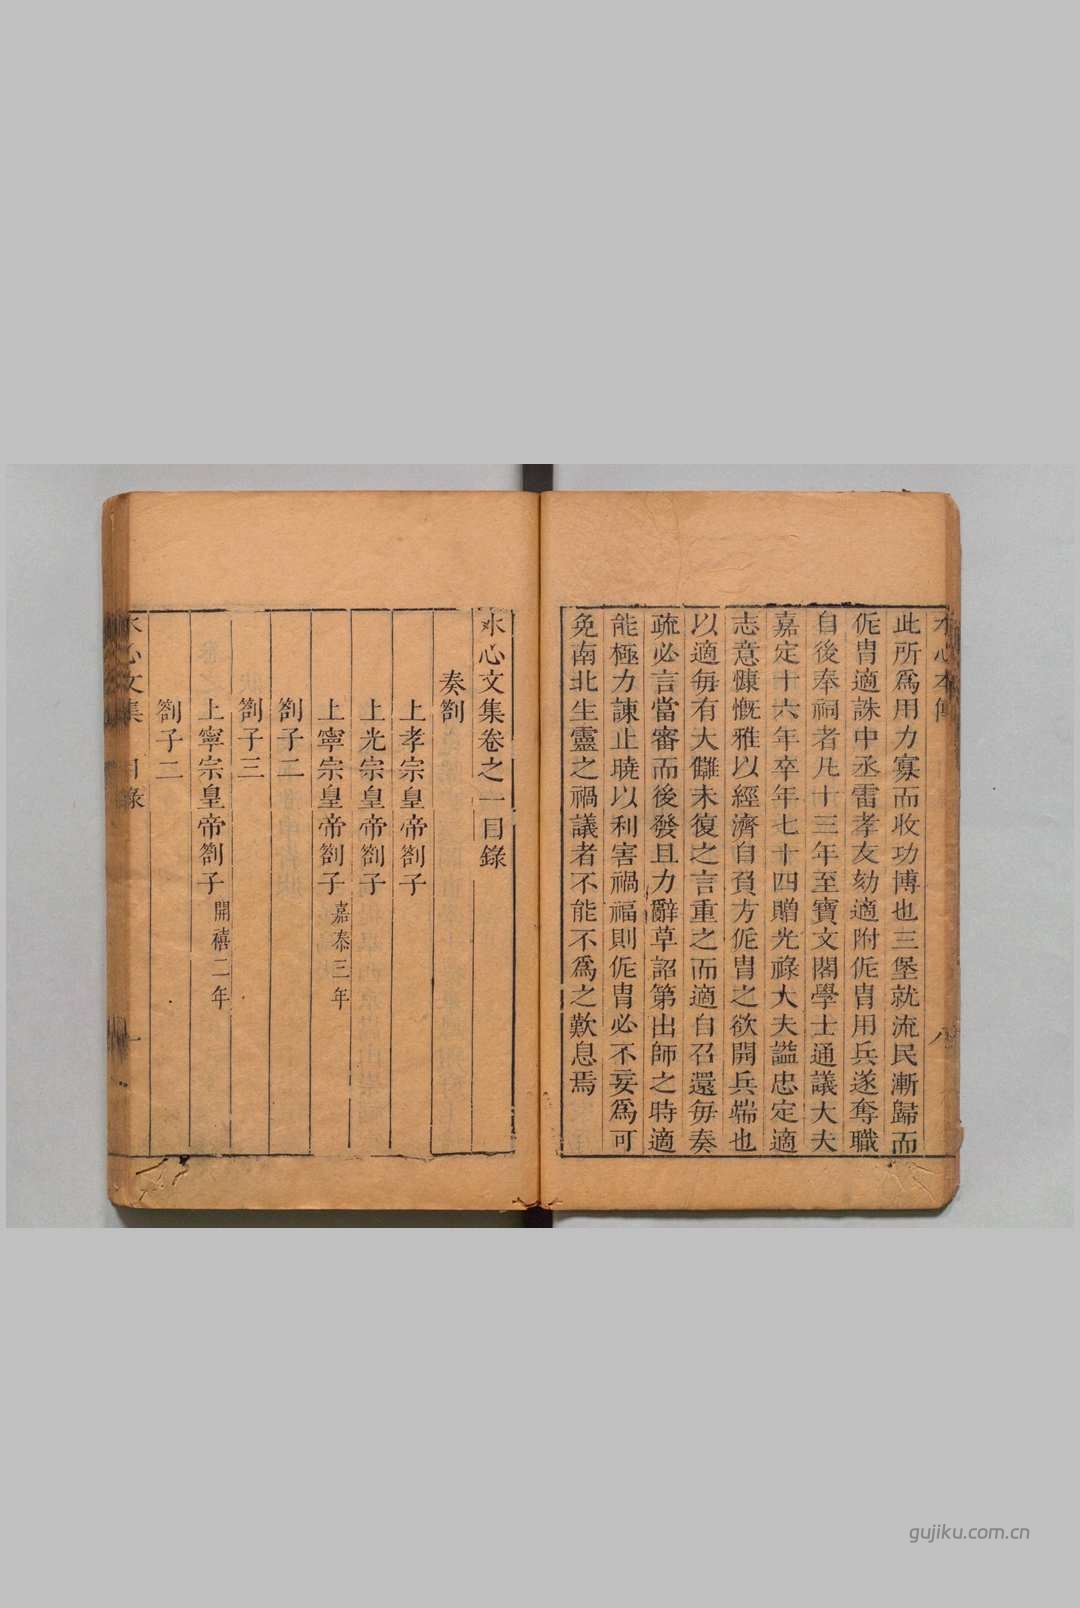 水心本傳
八
此所爲用力寡而收功博也三堡就流民漸歸而
侂胄適誅中丞雷孝友劾適附侂胄用兵遂奪職
自後奉祠者凡十三年至寶文閣學士通議大夫
嘉定十六年卒年七十四贈光祿大夫謚忠定適
志意慷慨雅以經濟自負方侂胄之欲開兵端也
以適每有大讎未復之言重之而適自召還每奏
疏必言當審而後發且力辭草詔第出師之時適
能極力諫止曉以利害禍福則侂胄必不妄爲可
免南北生靈之禍議者不能不爲之歎息焉
水心文集卷之一目錄
奏劄
上孝宗皇帝劄子
上光宗皇帝劄子
上寧宗皇帝劄子嘉泰三年
劄子二
劄子三
上寧宗皇帝劄子開禧二年
劄子二
水心文集 目錄
一
gujiku.com.cn